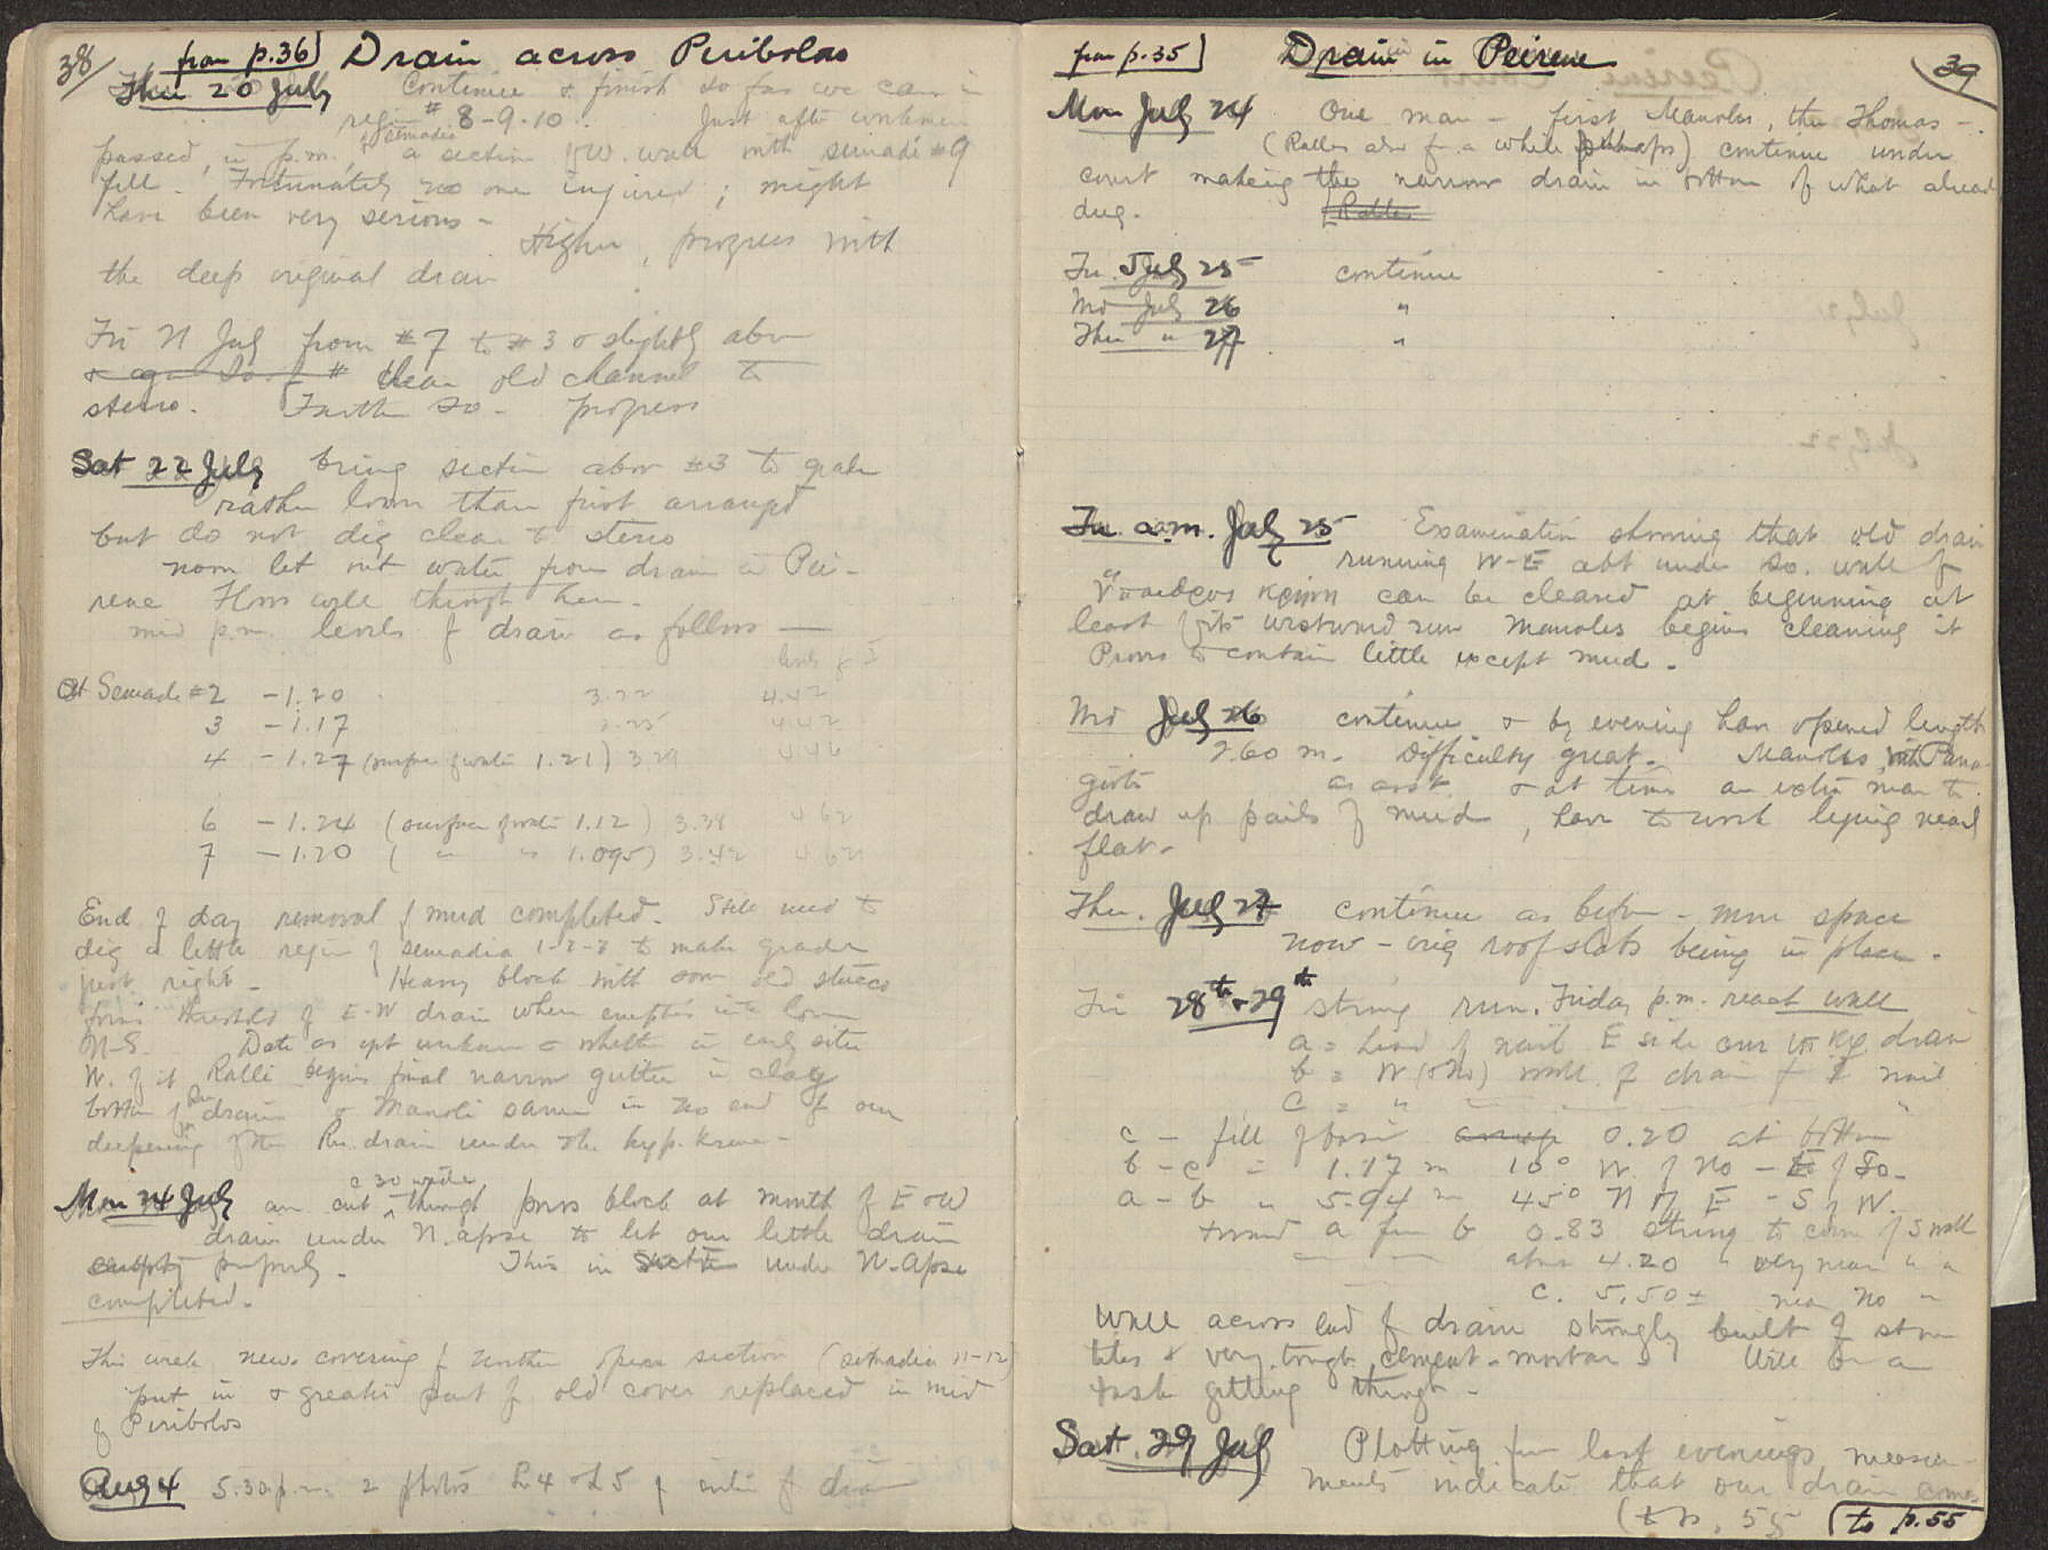 38/ from p.36] Drain across Peribolos
Thu 20 July Continue & finish so far as we can in
region # 8-9-10. Just after workmen
passed, in p.m., a section of W. wall with semadi #9
semadia
fell. Fortunately no one injured; might
have been very serious -
Higher, progress with
the deep original drain
Fri 21 July from #7 to #3 & slightly above
clear old channel to
stereo. Further So. progress
Sat 22 July bring section above #3 to grade
rather lower than first arranged
but do not dig clear to stereo
noon let out water from drain in Pei-
rene Flows well through here.
mid p.m. levels of drain as follows —
At Semadi #2 -1.20 3.22 4.42
3 -1.17 3.25 4.42
4 -1.27 (surface of water 1.21) 3.29 4.46
6 -1.24 (surface of water 1.12) 3.38 4.62
7 -1.20 ( " " 1.095) 3.42 4.62
End of day removal of mud completed. Still need to
dig a little region of semadia 1-2-3 to make grade
just right - Heavy block with some old stucco
forms threshold of E-W drain where empties into lower
N-S. Date as yet unknown & whether in early situ
W. of it Ralli begins final narrow gutter in clay
bottom of drain & Manoli same in No end of our
deepening of the Pei. drain under the hyp. krene -
Mon 24 July an cut through poros block at mouth of E & W
c 30 wide
drain under N. apse to let our little drain
empty properly. This in under N. Apse
completed.
This week new covering of northern open section (semadia 11-12)
put in & greater part of old cover replaced in mid
of Peribolos
Aug 4 5.30 p.m. 2 photos L4 & L5 of of drain
from p.35] Drain in Peirene 39
Mon July 24 One man - first Manolis, then Thomas -
(Ralles also for a while perhaps) continue under
court making the narrow drain in bottom of what already
dug. [Ralles
Tu. July 25 continue
Wd July 26 "
Thu " 27 "
Tu. a.m. July 25 Examination showing that old drain
running W-E abt under So. wall of
can be cleared at beginning at
least of its westward run Manoles begins cleaning it
Proves to contain little except mud.
Wd July 26 continue & by evening have opened length
2.60 m. Difficulty great. Manoles, with Pana-
giotis as asst. & at times an extra man to
draw up pails of mud, have to work lying nearly
flat.
Thu. July 27 continue as before - more space
now - orig roof slabs being in place.
Fri 28th & 29th string run. Friday p.m. reach wall
a = head of nail E side our drain
b = W (& No) wall of drain f nail
c = " — — — — "
c - fill of 0.20 at bottom
b - c = 1.17 m 10° W. of No - E of So.
a - b " 5.94 m 45° N of E - S of W.
toward a from b 0.83 string to corn of S wall
— — about 4.20 " very near " "
c. 5.50 ± near No "
Wall across end of drain strongly built of stone
tiles & very tough cement-mortar. Will be a
task getting through.
Sat. 29 July Plotting from last evenings measure-
ments indicates that our drain comes
(to p. 55 [to p.55